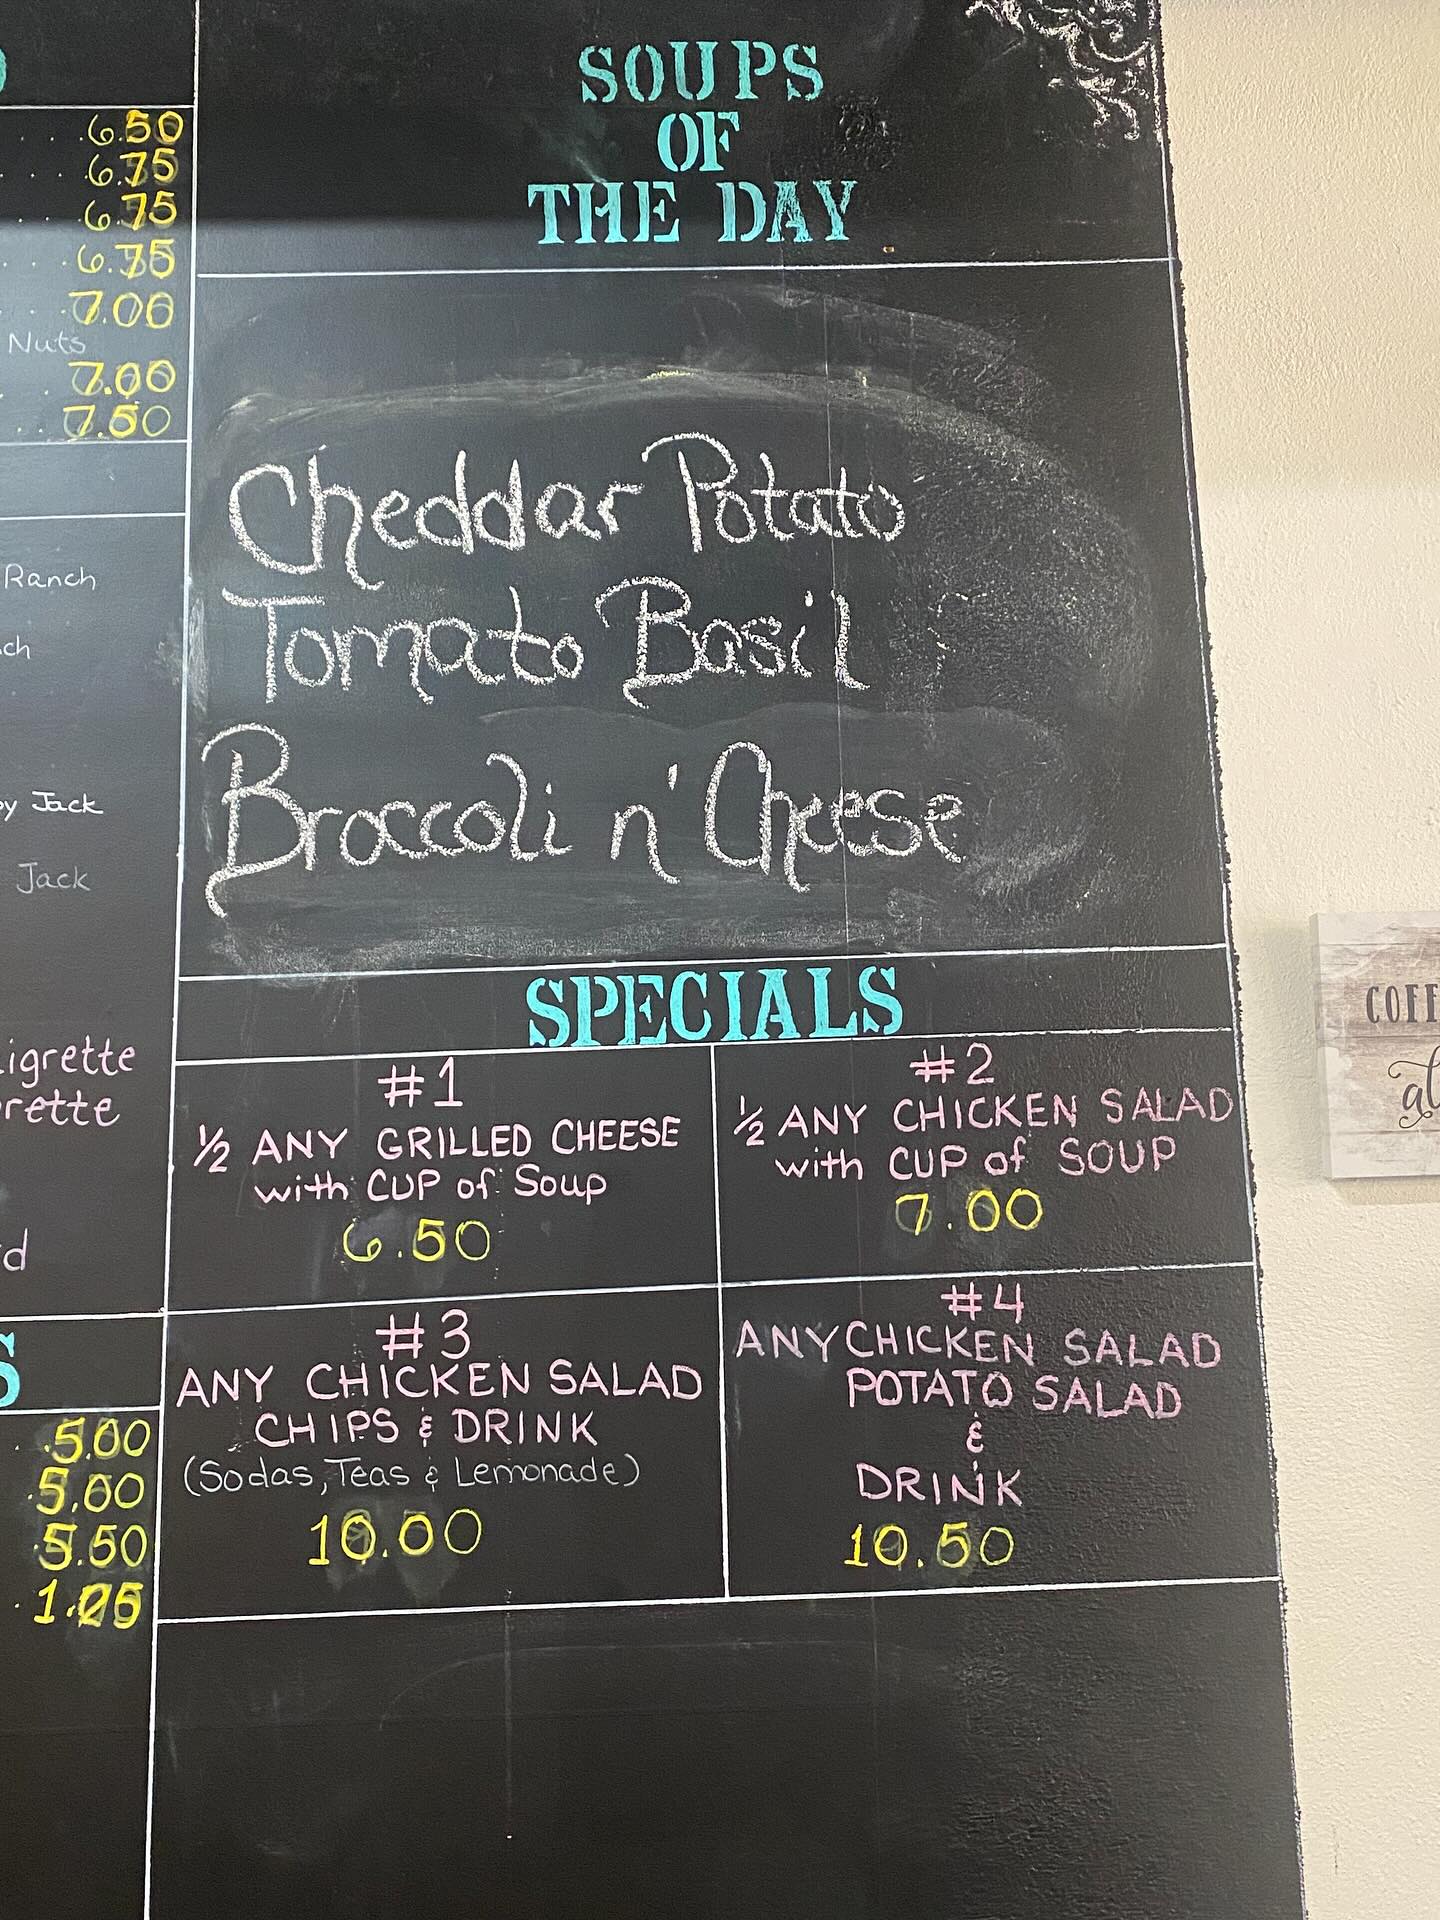 6.50
6.75
6.75
6.75
7.00
Nuts
7.00
7.50
Ranch
Jack
Jack
5.00
5.00
5.50
SOUPS
OF
THE DAY
Cheddar Potato
Tomato Basil
Broccoli n' Cheese
SPECIALS
#1
½ ANY GRILLED CHEESE
with CUP of Soup
6.50
#2
½ ANY CHICKEN SALAD
with CUP of SOUP
7.00
#3
ANY CHICKEN SALAD
CHIPS & DRINK
(Sodas, Teas & Lemonade)
10.00
#4
ANY CHICKEN SALAD
POTATO SALAD
&
DRINK
10.50